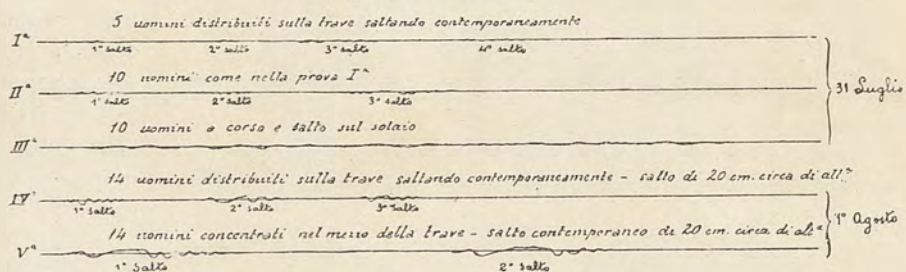 5 uomini distribuiti sulla trave saltando contemporaneamente
Iª
1° salto 2° salto 3° salto 4° salto
10 uomini come nella prova Iª
IIª
1° salto 2° salto 3° salto
31 Luglio
10 uomini a corsa e salto sul solaio
IIIª
14 uomini distribuiti sulla trave saltando contemporaneamente - salto di 20 cm. circa di alt.ª
IVª
1° salto 2° salto 3° salto
1° Agosto
14 uomini concentrati nel mezzo della trave - salto contemporaneo di 20 cm. circa di altª
Vª
1° salto 2° salto